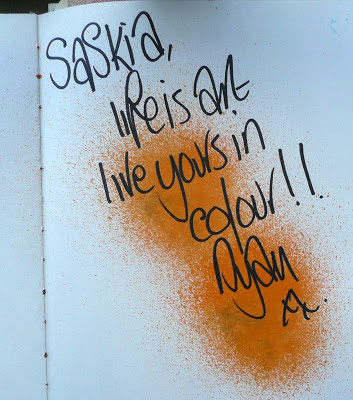 Saskia,
life is art
live yours in
colour!!
Ryan
x.